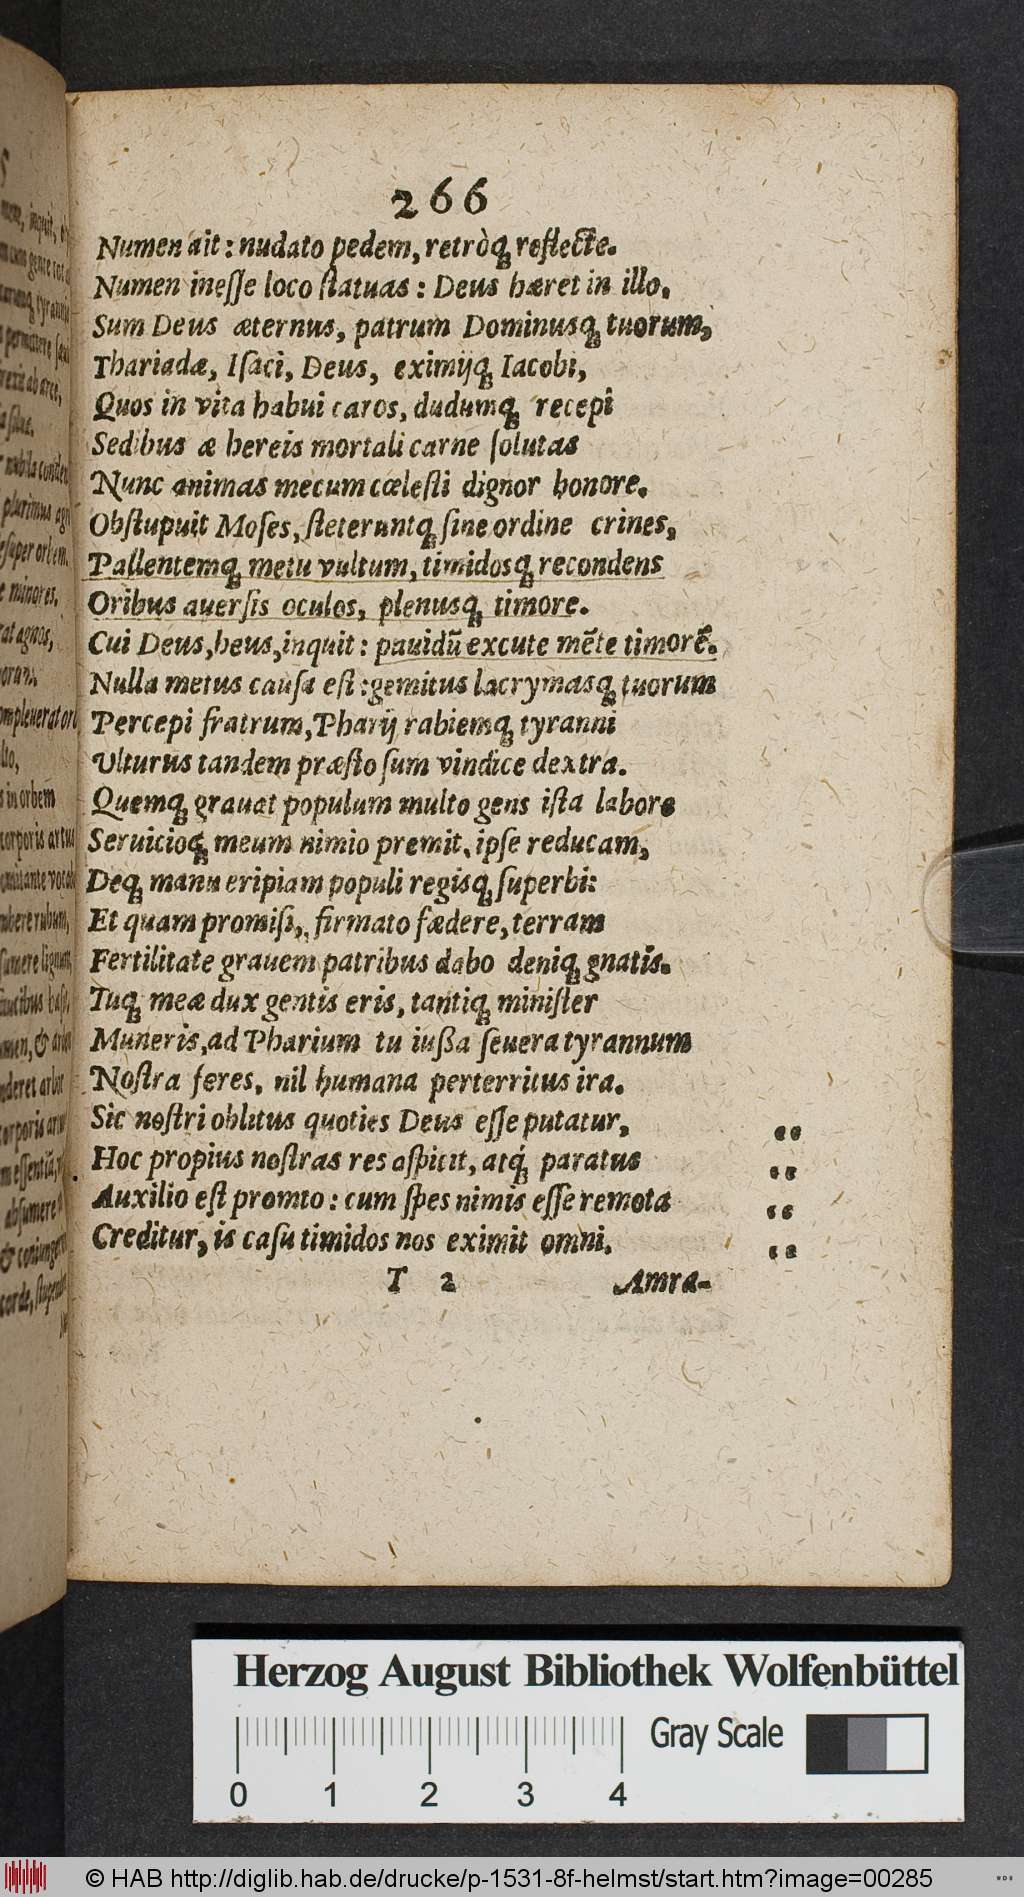 266
Numen ait: nudato pedem, retròq́; reflecte.
Numen inesse loco statuas: Deus hæret in illo.
Sum Deus æternus, patrum Dominusq́; tuorum,
Thariadæ, Isaci, Deus, eximijq́; Iacobi,
Quos in vita habui caros, dudumq́; recepi
Sedibus æ hereis mortali carne solutas
Nunc animas mecum cœlesti dignor honore.
Obstupuit Moses, steteruntq́; sine ordine crines,
Pallentemq́; metu vultum, timidosq́; recondens
Oribus auersis oculos, plenusq́; timore.
Cui Deus, heus, inquit: pauidũ excute mẽte timorẽ.
Nulla metus causa est: gemitus lacrymasq́; tuorum
Percepi fratrum, Pharij rabiemq́; tyranni
Vlturus tandem præsto sum vindice dextra.
Quemq́; grauat populum multo gens ista labore
Seruicioq́; meum nimio premit, ipse reducam,
Deq́; manu eripiam populi regisq́; superbi:
Et quam promisi, firmato fædere, terram
Fertilitate grauem patribus dabo deniq́; gnatis.
Tuq́; meæ dux gentis eris, tantiq́; minister
Muneris, ad Pharium tu iussa seuera tyrannum
Nostra feres, nil humana perterritus ira.
Sic nostri oblitus quoties Deus esse putatur, „
Hoc propius nostras res aspicit, atq́; paratus „
Auxilio est promto: cum spes nimis esse remota „
Creditur, is casu timidos nos eximit omni. „
T 2 Amra-
Herzog August Bibliothek Wolfenbüttel
Gray Scale
0 1 2 3 4
© HAB http://diglib.hab.de/drucke/p-1531-8f-helmst/start.htm?image=00285